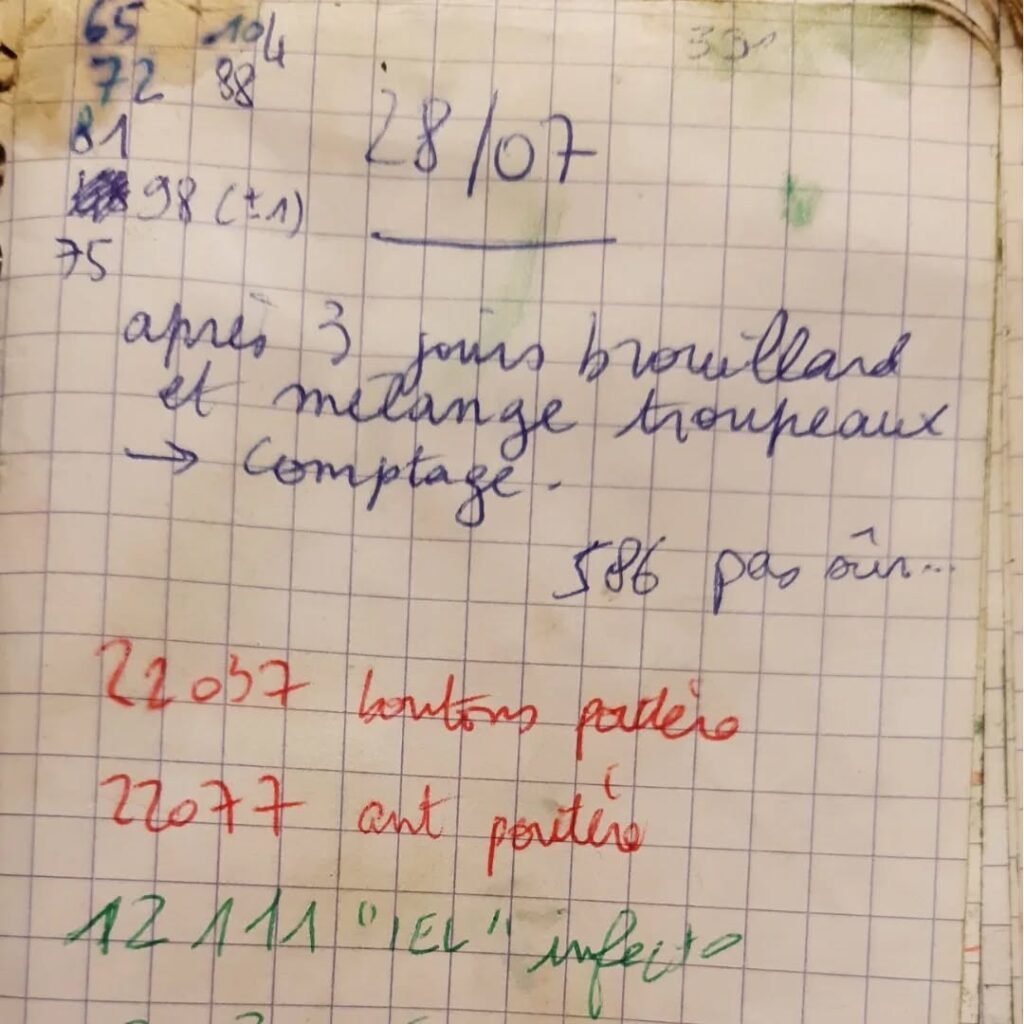 65 104
72 88
81
98 (±1)
75
331
28/07
après 3 jours brouillard
et mélange troupeaux
→ Comptage.
586 pas sûr...
22037 boutons
22077 ant
12111 "IEL" infecto